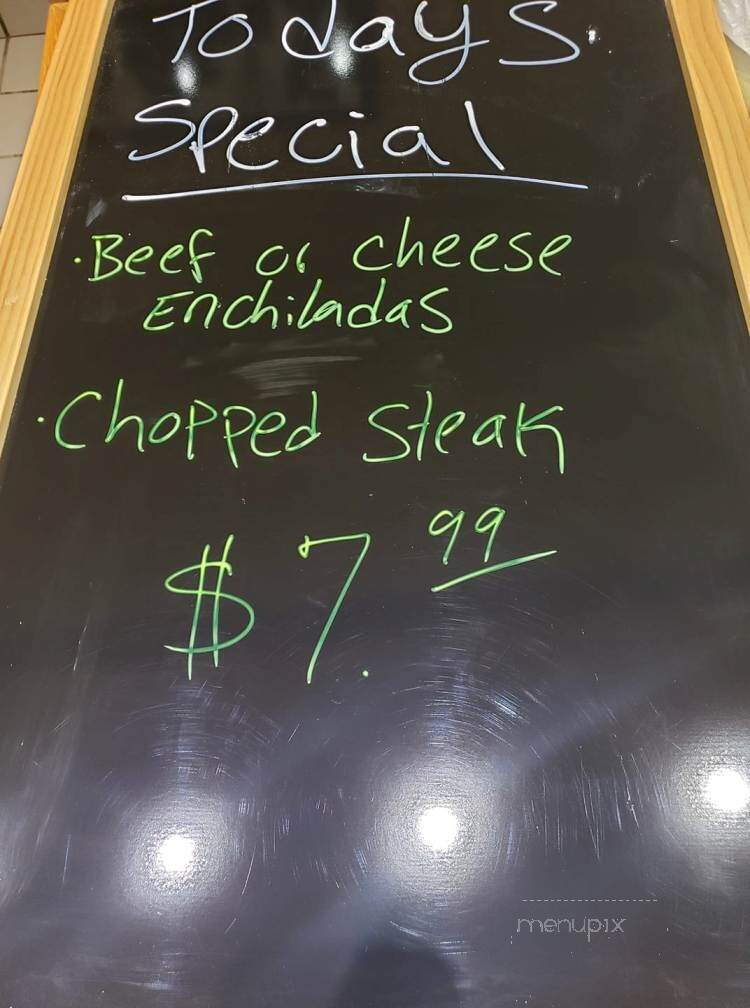 Todays
Special
· Beef or cheese
Enchiladas
· Chopped Steak
$7.99
menupix